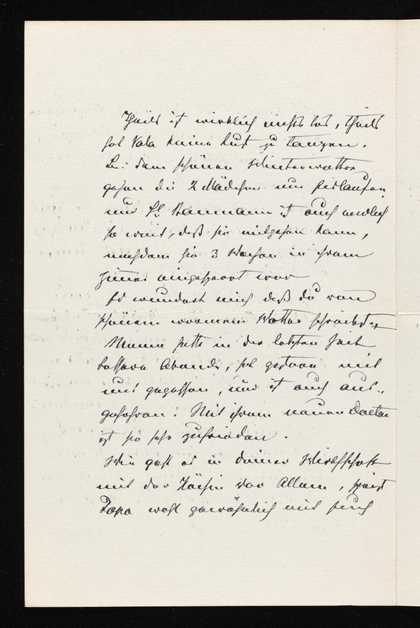 Theils ist wirklich nichts los, theils
hat Kata keine Lust zu tanzen.
Bei dem schönen Winterwetter
gehen die 2 Mädchen nun Eislaufen
und Fr. Baumann ist auch endlich
so weit, daß sie mitgehen kann,
nachdem sie 3 Wochen in ihrem
Zimmer eingesperrt war
Es wundert mich daß du von
schönem warmem Wetter schreibst
Mama hatte in der letzten Zeit
bessere Abende, hat gestern mit
uns gegessen, und ist auch aus-
gefahren. Mit ihrem neuen Doctor
ist sie sehr zufrieden.
Wie geht es in deiner Wirthschaft
mit der Köchin vor Allem, speist
Papa wohl gewöhnlich mit Euch